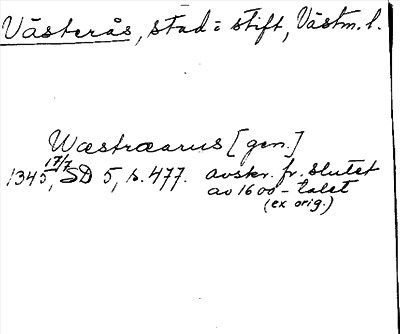 Västerås, stad = stift, Västm. l.
Wæstræarus [gen.]
1345 17/7, SD 5, s. 477. avskr. fr. slutet
av 1600-talet
(ex orig.)